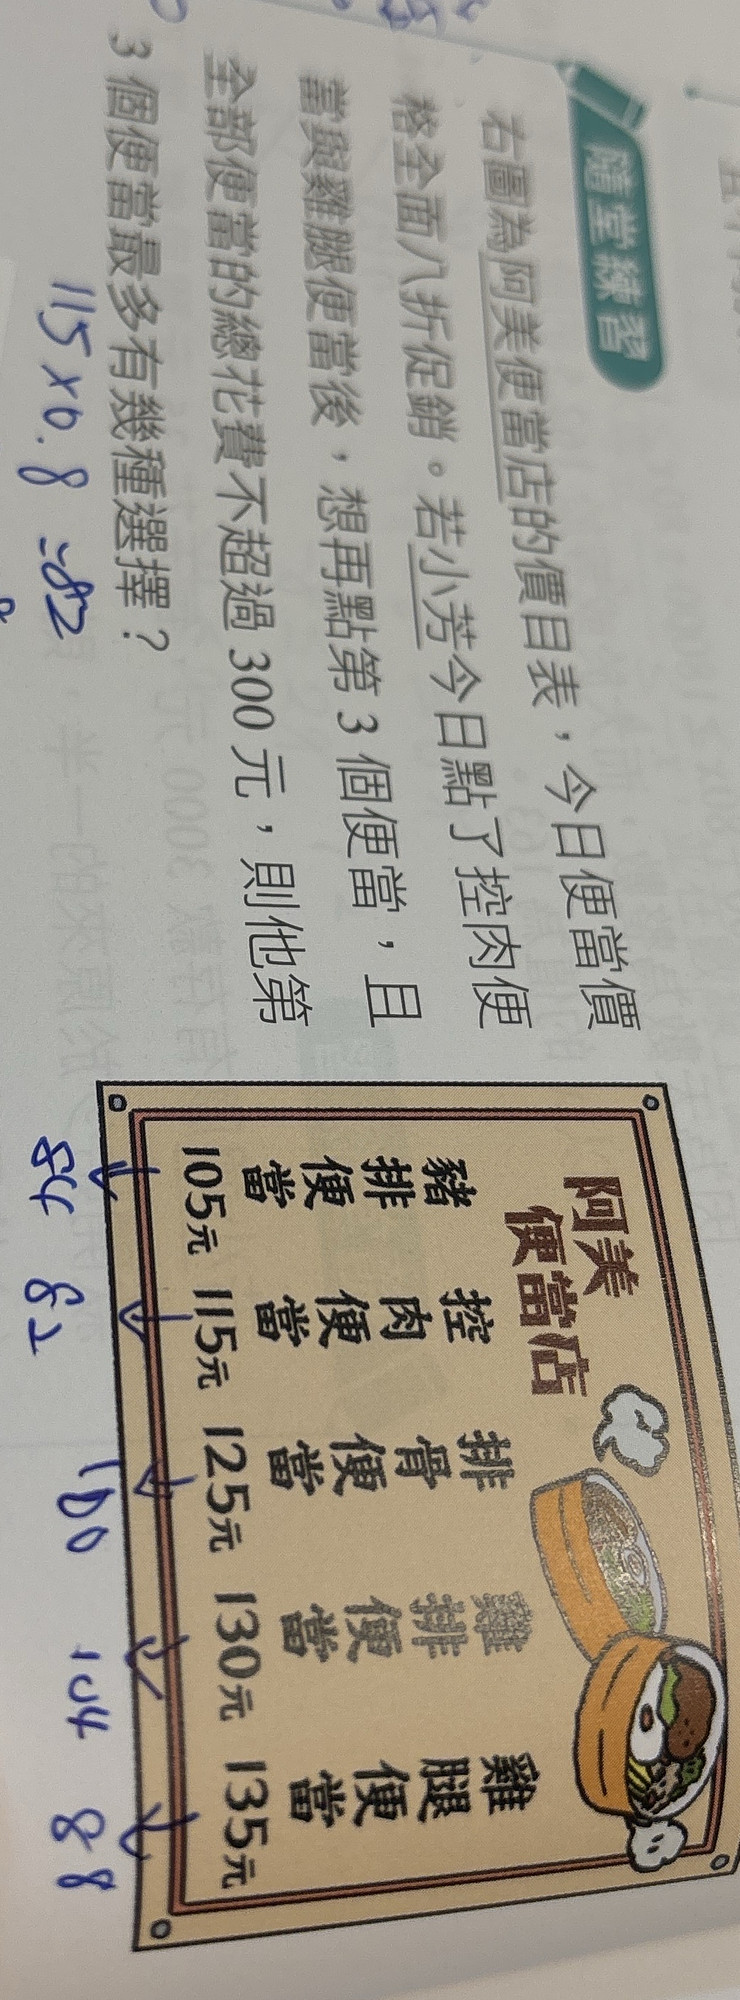 隨堂練習
右圖為阿美便當店的價目表,今日便當價
格全面八折促銷。若小芳今日點了控肉便
當與雞腿便當後,想再點第3個便當,且
全部便當的總花費不超過300元,則他第
3個便當最多有幾種選擇?
115×0.8=82
阿美
便當店
豬排便當 控肉便當 排骨便當 雞排便當 雞腿便當
105元 115元 125元 130元 135元
84 82 100 104 88